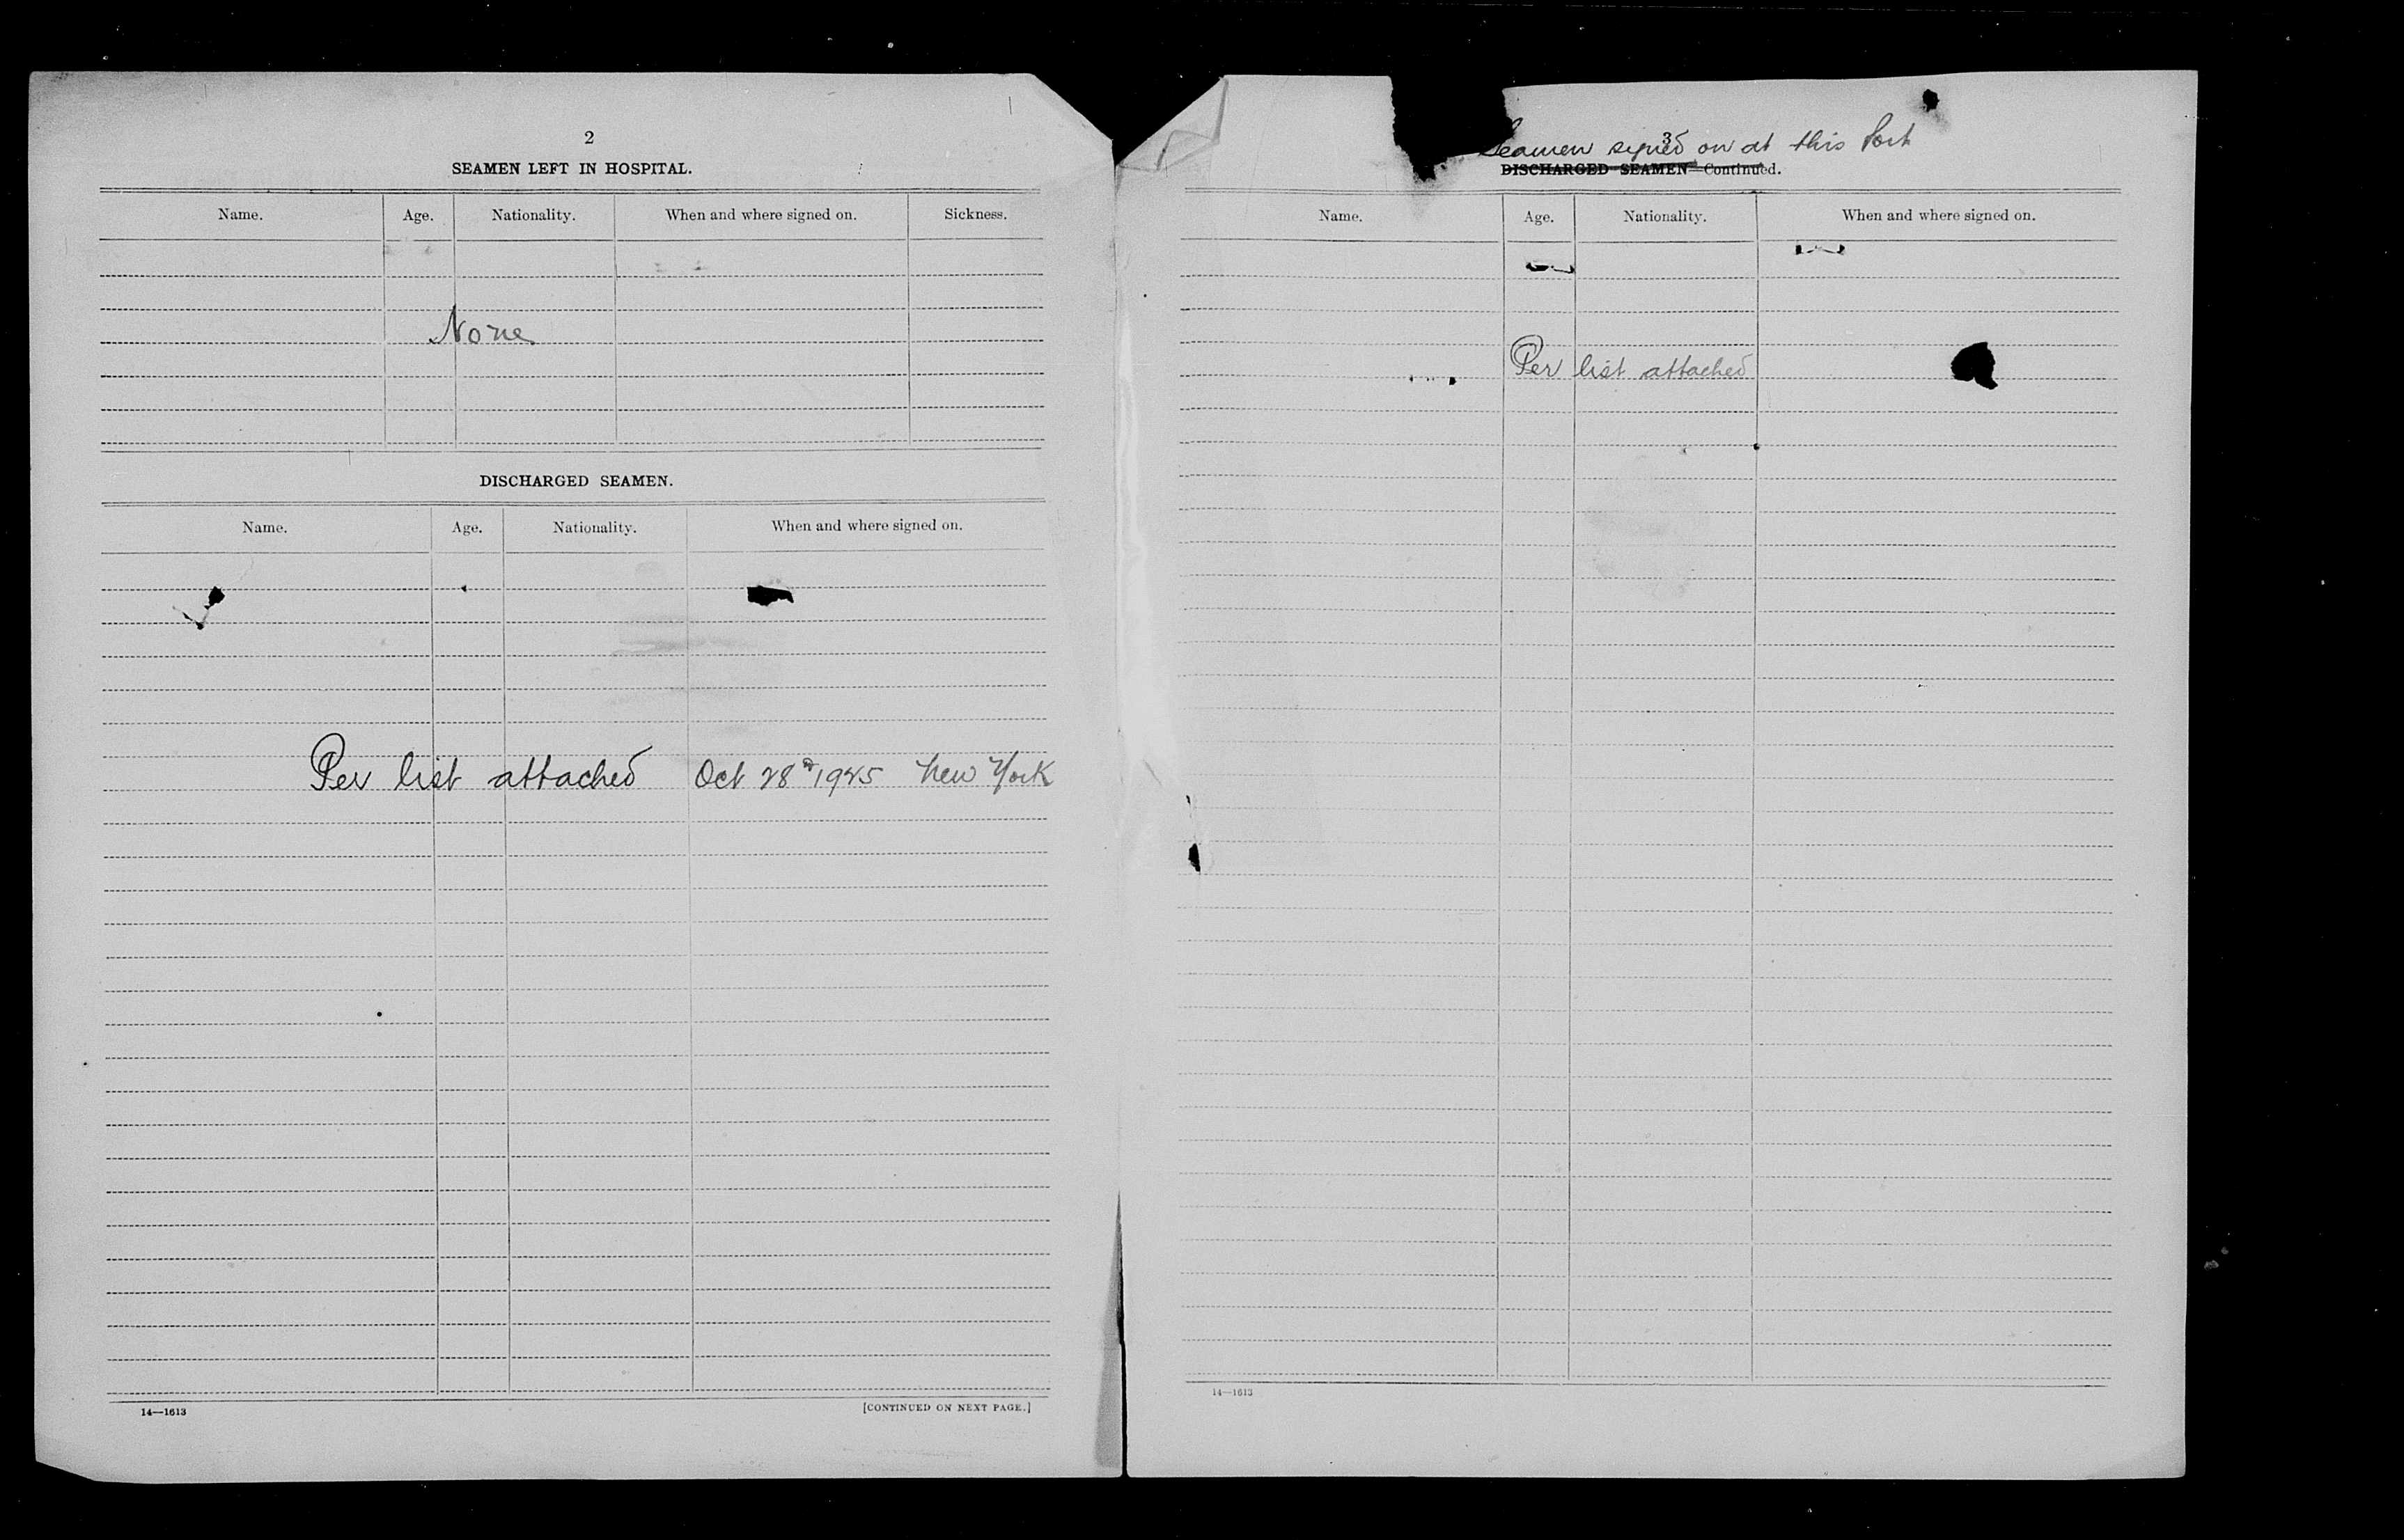 2
SEAMEN LEFT IN HOSPITAL.
Name. Age. Nationality. When and where signed on. Sickness.
None
DISCHARGED SEAMEN.
Name. Age. Nationality. When and where signed on.
Per list attached Oct 28 New York
14—1613 [CONTINUED ON NEXT PAGE.]
3
Seamen signed on at this Port
DISCHARGED SEAMEN—Continued.
Name. Age. Nationality. When and where signed on.
Per list attached
14—1613